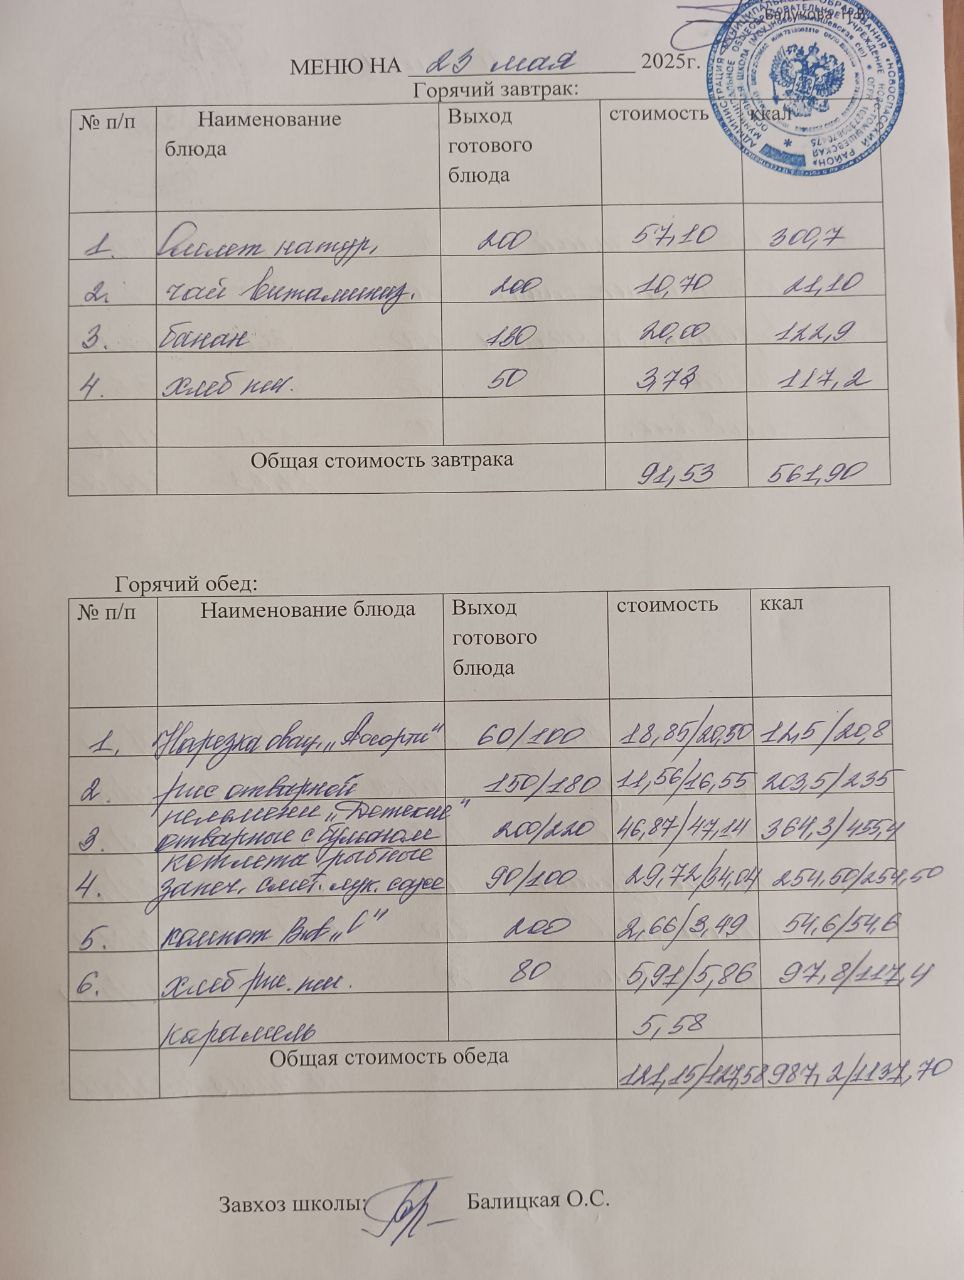 Балукова Н.В.
МЕНЮ НА 23 мая 2025г.
Горячий завтрак:
№ п/п Наименование блюда Выход готового блюда стоимость ккал
1. Омлет натур. 200 57,10 300,7
2. чай витаминиз. 200 10,70 21,10
3. банан 130 20,00 122,9
4. хлеб пш. 50 3,73 117,2
Общая стоимость завтрака 91,53 561,90
Горячий обед:
№ п/п Наименование блюда Выход готового блюда стоимость ккал
1. Нарезка овощ. „Ассорти" 60/100 18,85/20,50 12,5/20,8
2. рис отварной 150/180 11,56/16,55 203,5/235
3. пельмени „Детские" отварные с бульоном 200/220 46,87/47,14 364,3/455,4
4. котлета рыбные запеч. смет. лук. соусе 90/100 29,72/34,04 254,50/254,50
5. компот Вит „С" 200 2,66/3,49 54,6/54,6
6. хлеб рж. пш. 80 5,91/5,86 97,8/117,4
карамель 5,58
Общая стоимость обеда 121,15/127,58 987,2/1137,70
Завхоз школы: Балицкая О.С.